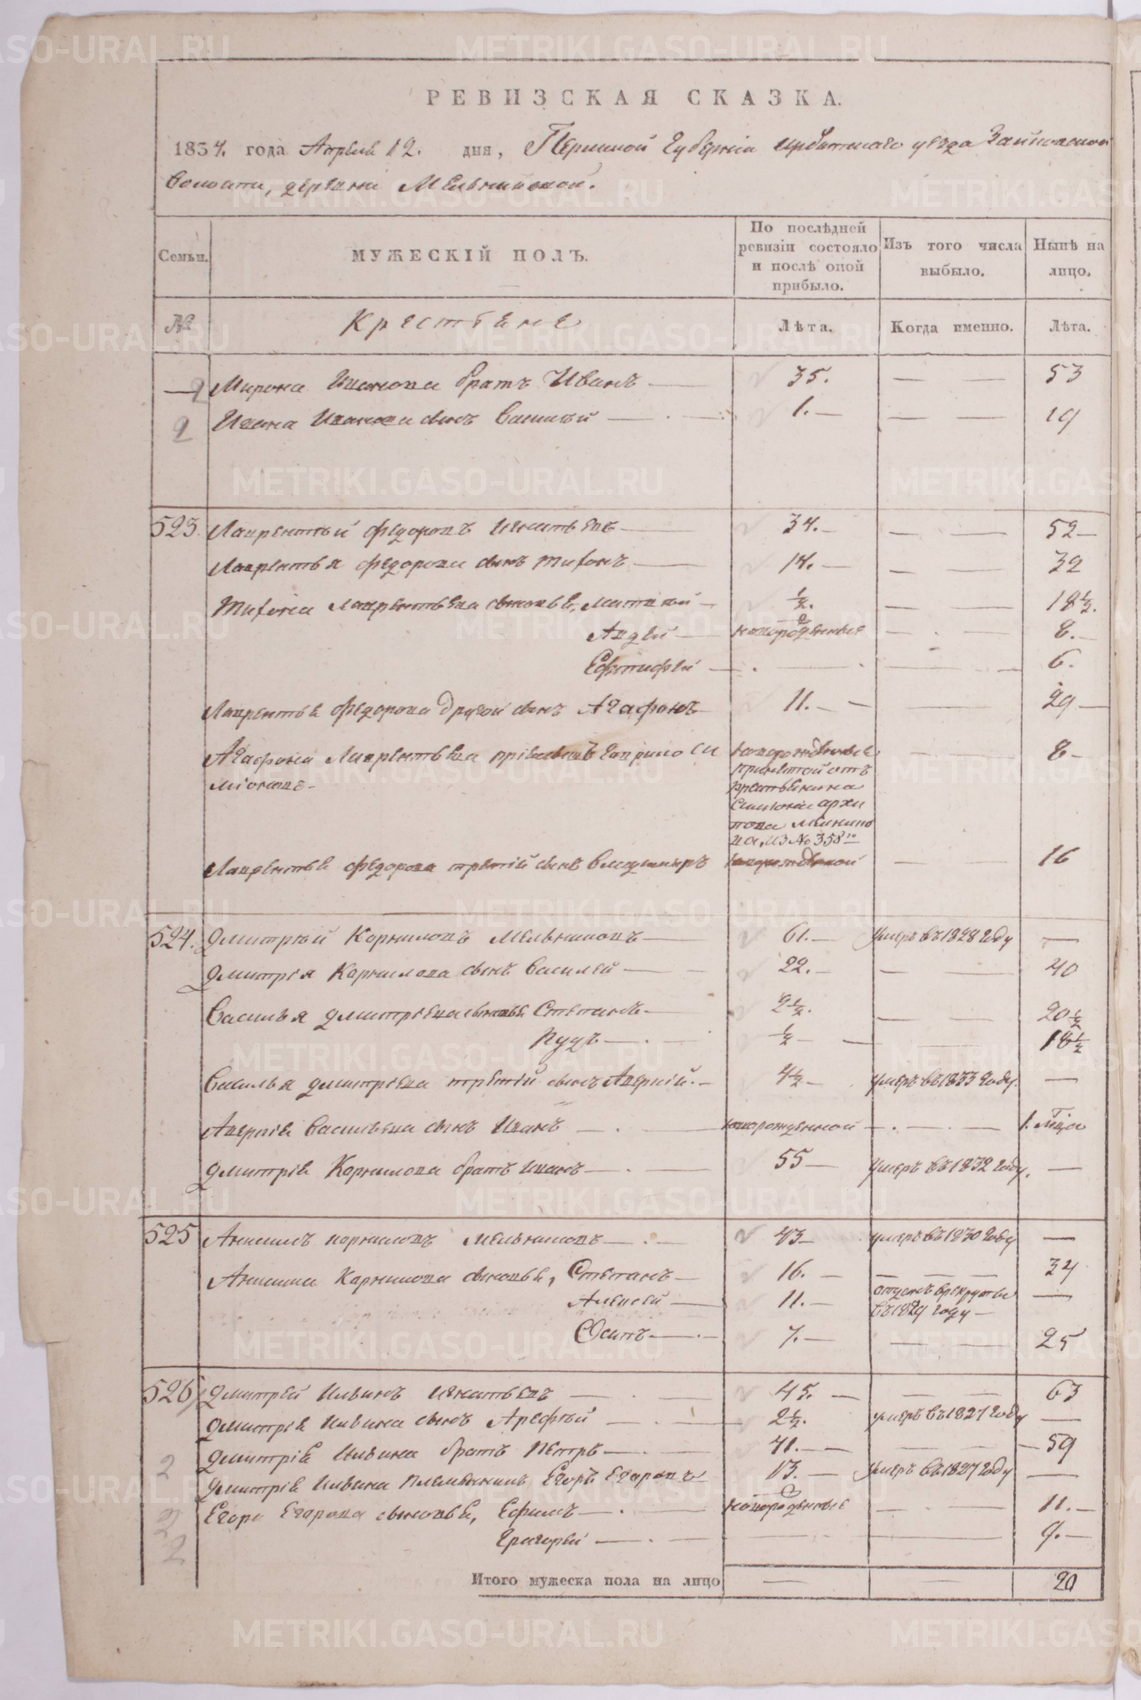 РЕВИЗСКАЯ СКАЗКА.
1834. года Апреля 12. дня, Пермской Губернiи Ирбитскаго уезда Зайковской
Волости, деревни Мельниковой.
Семьи.
МУЖЕСКIЙ ПОЛЪ.
По последней ревизiи состояло и послѣ оной прибыло.
Изъ того числа выбыло.
Нынѣ на лицо.
№
Крестьяне
Лѣта.
Когда именно.
Лѣта.
Мирона Иванова братъ Иванъ 35. 53
2
Ивана Иванова сынъ Василiй 1. 19
2
523. Лаврентiй Федоровъ Игнатьевъ 34. 52
Лаврентья Федорова сынъ Тифонъ 14. 32
Тифона Лаврентьева сыновья, 1/2. 18 1/2.
Авдей новорожденные 8.
Евтифей 6.
Лаврентья Федорова другой сынъ Агафонъ 11. 29
Агафона Лаврентьева Гаврило Си новорожденные 8
мiоновъ
принятой отъ
крестьянина
Симiона Архи
пова
из № 358 го
Лаврентья Федорова третiй сынъ Владимиръ новорожденной 16
524. Дмитрiй Корниловъ Мельниковъ 61. умеръ въ 1828 году
Дмитрiя Корнилова сынъ Василей 22. 40
Василья Дмитрiева сыновья Степанъ 2 1/2. 20 1/2
Пудъ 1/2 18 1/2
Василья Дмитрiева третiй сынъ Аверкiй. 4 1/2 умеръ въ 1833 году.
Аверкiя Васильева сынъ Иванъ новорожденной 1. мѣца
Дмитрiя Корнилова братъ Иванъ 55 умеръ въ 1832 году.
525 Анисимъ Корниловъ Мельниковъ 43 умеръ въ 1830 году
Анисима Карнилова сыновья, Степанъ 16. 34
Алексей 11. отданъ в рекруты
въ 1829 году
Осипъ 7. 25
526 Дмитрей Ильинъ Игнатьевъ 45. 63
Дмитрiя Ильина сынъ Арефiй 2 1/2. умеръ въ 1827 году
Дмитрiя Ильина братъ Петръ 41. 59
2
Дмитрiя Ильина племянникъ Егоръ Егоровъ 13. умеръ въ 1827 году
Егора Егорова сыновья, Ефимъ новорожденные 11.
2
Григорей 9.
2
Итого мужеска пола на лицо 20
METRIKI.GASO-URAL.RU